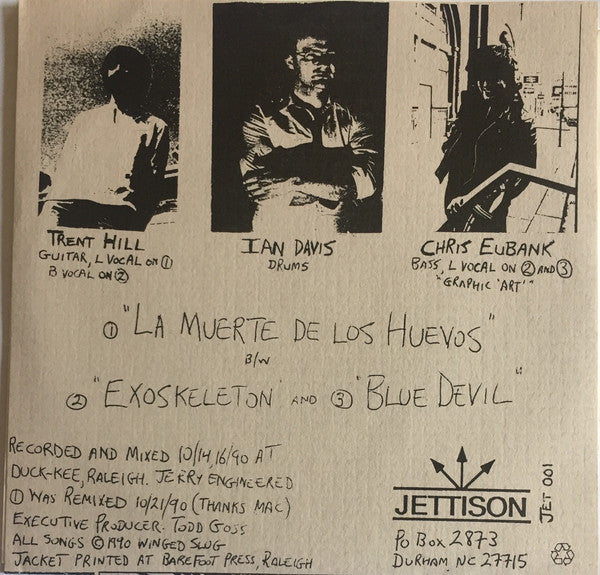 TRENT HILL
GUITAR, L VOCAL ON ①
B VOCAL ON ②
IAN DAVIS
DRUMS
CHRIS EUBANK
BASS, L VOCAL ON ② AND ③
"GRAPHIC 'ART'"
① "LA MUERTE DE LOS HUEVOS"
B/W
② "EXOSKELETON" AND ③ "BLUE DEVIL"
RECORDED AND MIXED 10/14,16/90 AT
DUCK-KEE, RALEIGH. JERRY ENGINEERED
① WAS REMIXED 10/21/90 (THANKS MAC)
EXECUTIVE PRODUCER: TODD GOSS
ALL SONGS © 1990 WINGED SLUG
JACKET PRINTED AT BAREFOOT PRESS, RALEIGH
JETTISON
JET 001
PO BOX 2873
DURHAM NC 27715